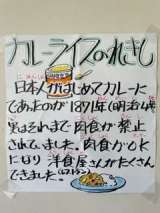 カレーライスのれきし
日本人がはじめてカレーに
であよのが1871年(明治4年
実はそれまで肉食が禁止
されていました。肉食がOK
になり洋食屋さんがたくさん
できました。(レストラン)